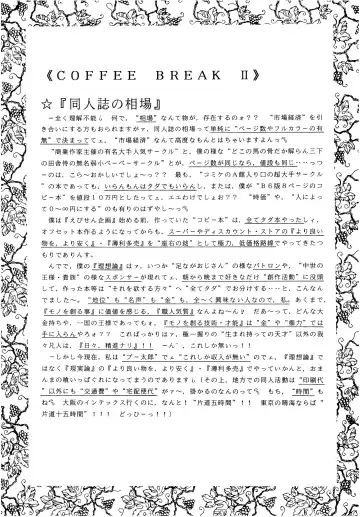 《COFFEE BREAK Ⅱ》
☆『同人誌の相場』
－全く理解不能💧 何で、"相場"なんて物が、存在するのォ？？ "市場経済"を引
き合いにする方もおられますがァ、同人誌の相場って単純に"ページ数やフルカラーの有
無"で決まってェ、"市場経済"なんて高度なもんとはちゃいますよんっ
"商業作家主催の有名大手人気サークル"と、僕の様な"どこの馬の骨だか解らん三下
の田舎侍の無名弱小ペーペーサークル"とが、ページ数が同じなら、値段も同じ……っつ
ーのは、こらーおかしいでしょ～っ？？ 最も、"コミケのＡ館入り口の超大手サークル
"の本であっても、いらんもんはタダでもいらんし、または、僕が"Ｂ６版８ページのコ
ピー本"を値段１０万円としたってェ、ええわけでしょぉ？？ "時価"や、"人によっ
て０～∞円にする"のも有りのはずやし～っ
僕は『えびせん企画』を始める前、作っていた"コピー本"は、全てタダ本やったしィ、
オフセット本作るようになってからも、スーパーディスカウント・ストアの『より良い
物を、より安く』・『薄利多売』を"座右の銘"として極力、低価格路線でやってきたつ
もりでありんす。
んでで、僕の『理想論』はァ、いつか"足ながおじさん"の様なパトロンや、"中世の
王様・貴族"の様なスポンサーが現れてェ、朝から晩まで好きなだけ"創作活動"に没頭
して、作った本等は"それを欲する方々"へ"全てタダ"でお分けする……と、こんなん
でもした～。"地位"も"名声"も"金"も、全～く興味ない人なので、私。あくまで、
『モノを創る事』に価値を感じる、『職人気質』なんよね～んっ だあ～って、どんな大
金持ちや、一国の王様であってもォ、『モノを創る技術・才能』は"金"や"権力"では
手に入らんやろォ？？ こればっかりはァ、極一握りの"生まれ持っての天才"以外の我
々凡人は、『日々、精進ナリ』！！ －んっ 『これしか無いっ！！
－しかし今現在、私は"プー太郎"でェ"これしか収入が無い"のでェ、『理想論』で
はなく『現実論』の『より良い物を、より安く』・『薄利多売』でやっていかんと、おま
んまの喰いっぱぐれになってまうのであります💧（その上、地方での同人活動は"印刷代
"以外にも"交通費"や"宅配便代"がァ～、掛かるのなんのって💧 もち、"時間"も
ね💧 大阪のインテックス行くのに、なんと！"片道五時間"！！ 東京の晴海ならば"
片道十五時間"！！！ どっひーっ！！）